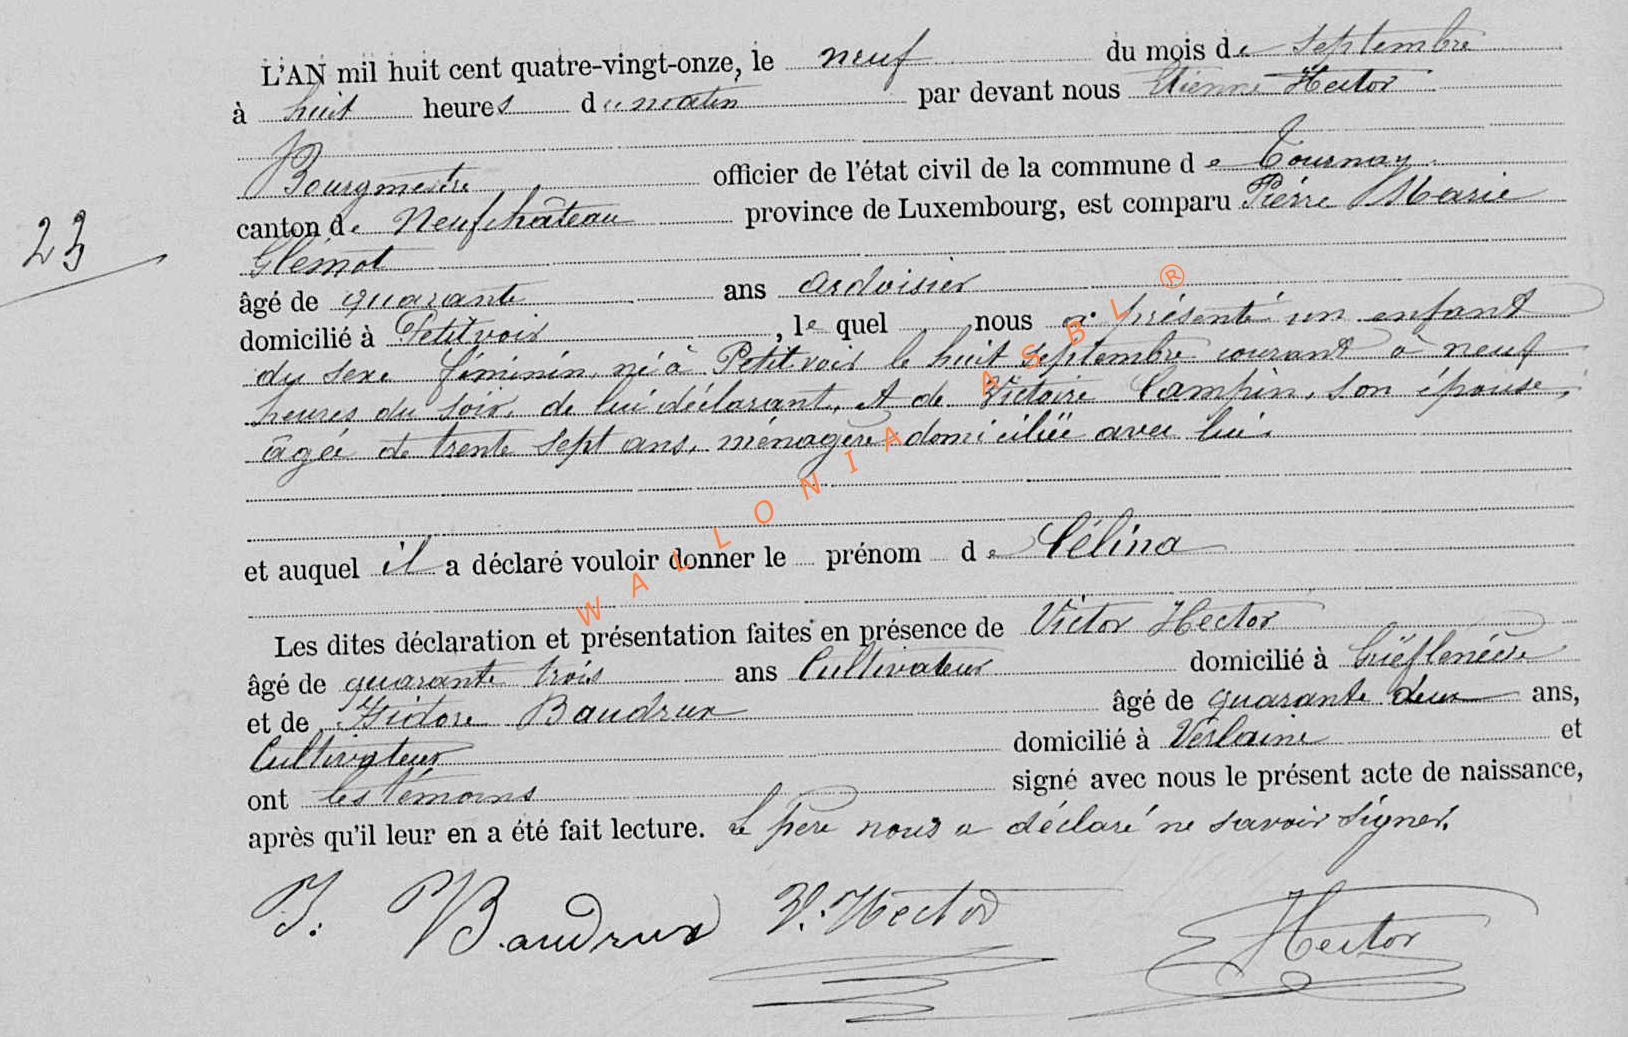 L'AN mil huit cent quatre-vingt-onze, le neuf du mois de septembre
à huit heures du matin par devant nous Etienne Hector
Bourgmestre officier de l'état civil de la commune de Tournay
canton de Neufchâteau province de Luxembourg, est comparu Pierre Marie
23
Glémot
âgé de quarante ans ardoisier
domicilié à Petitvoir, le quel nous a présenté un enfant
du sexe féminin, né à Petitvoir le huit septembre courant à neuf
heures du soir, de lui déclarant, et de Victoire Campin, son épouse,
âgée de trente sept ans, ménagère domiciliée avec lui.
et auquel il a déclaré vouloir donner le prénom de Célina
Les dites déclaration et présentation faites en présence de Victor Hector
âgé de quarante trois ans Cultivateur domicilié à
et de Isidore Baudrux âgé de quarante deux ans,
Cultivateur domicilié à Verlaine et
ont les témoins signé avec nous le présent acte de naissance,
après qu'il leur en a été fait lecture. Le père nous a déclaré ne savoir signer.
J. Baudrux V. Hector E Hector
WALLONIA ASBL ®